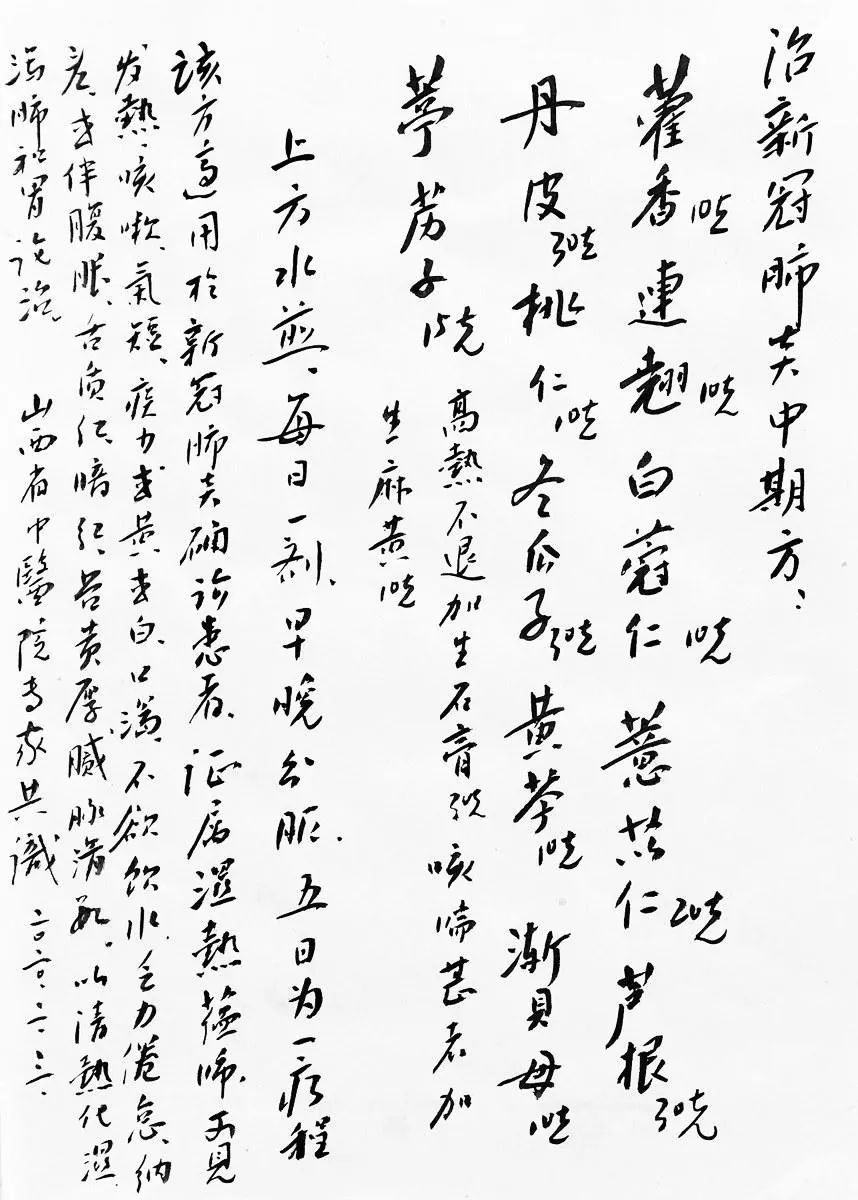 治新冠肺炎中期方：
藿香10克 連翹10克 白蔻仁10克 薏苡仁20克 芦根30克
丹皮30克 桃仁10克 冬瓜子30克 黄芩10克 浙貝母10克
葶苈子15克 高熱不退加生石膏 咳喘甚者加
生麻黄10克
上方水煎、每日一剂、早晚分服、五日为一疗程
該方適用於新冠肺炎确診患者、证属濕熱蕴肺、可見
发熱、咳嗽、氣短、痰少或黄或白、口渴、不欲飲水、乏力倦怠、纳
差、或伴腹脹、舌质红、暗红、苔黄厚、膩、脉滑数、以清熱化濕
泻肺和胃论治
山西省中醫院专家共識 二〇二〇、二、三、